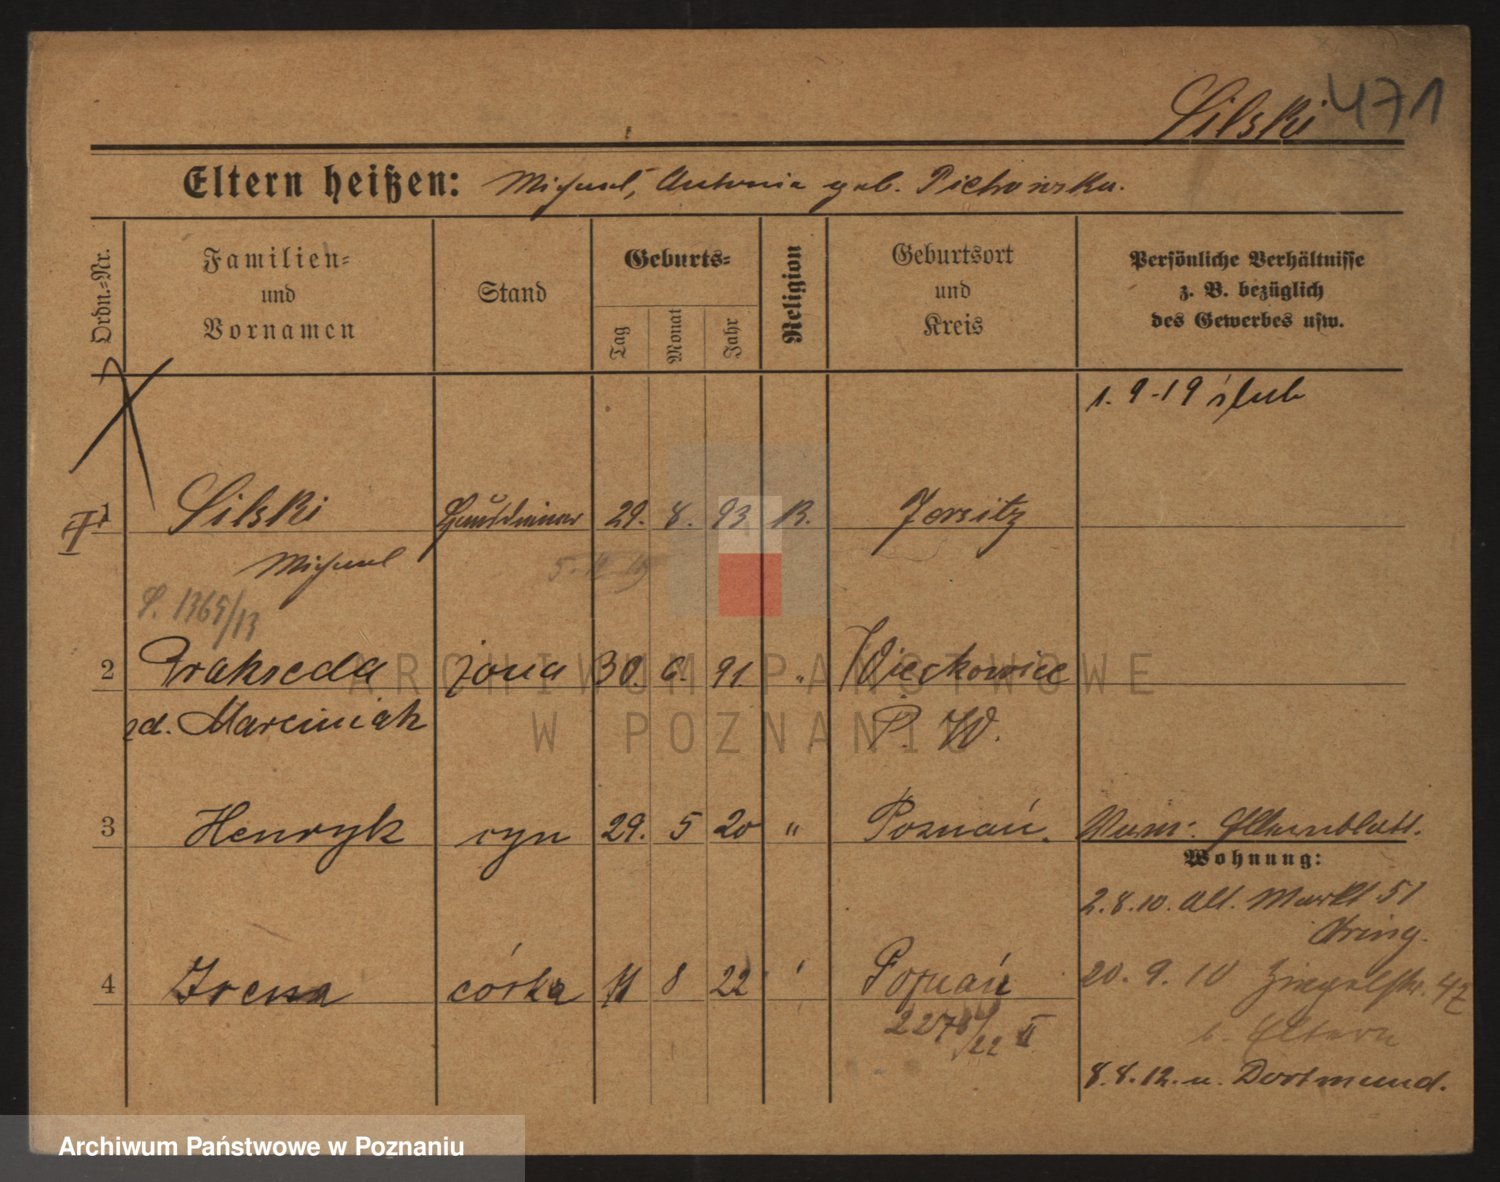 Silski 471
Eltern heißen: Michael, Antonia geb. Piechowska.
Ordn.-Nr.
Familien-
und
Vornamen
Stand
Geburts-
Tag
Monat
Jahr
Religion
Geburtsort
und
Kreis
Persönliche Verhältnisse
z. B. bezüglich
des Gewerbes usw.
1. 9-19 ślub
1 Silski Hausdiener 29. 8. 93 K. Jersitz
Michael
S. 1365/13
2 Prakseda żona 30. 6. 91 " Więckowice
zd. Marciniak P. W.
3 Henryk syn 29. 5 20 " Poznań. Elternblatt.
Wohnung:
2.8.10. Alt. Markt 51
4 Irena córka 11 8 22 Poznań
20. 9. 10 Ziegelstr. 47
b. Eltern
II
8.8.12. n. Dortmund.
ARCHIWUM PAŃSTWOWE
W POZNANIU
Archiwum Państwowe w Poznaniu